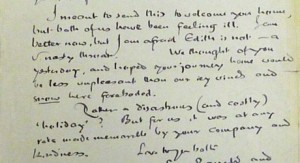 I meant to send this to welcome you home,
but both of us have been feeling ill. I am
better now, but I am afraid Edith is not — a
nasty throat. We thought of you
yesterday, and hoped your journey home would
be less unpleasant than our icy winds and
snow here foreboded.
Rather a disastrous (and costly)
"holiday"! But for us it was at any
rate made memorable by your company and
kindness. Love to you both